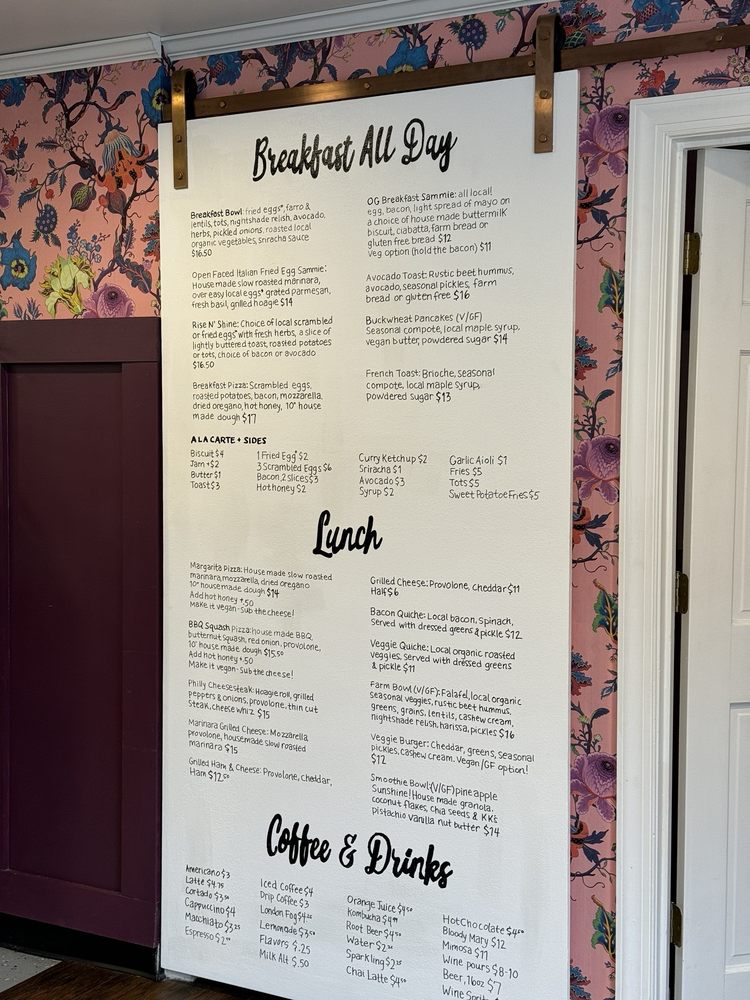 Breakfast All Day
Breakfast Bowl: fried eggs*, farro &
lentils, tots, nightshade relish, avocado,
herbs, pickled onions, roasted local
organic vegetables, sriracha sauce
$16.50
Open Faced Italian Fried Egg Sammie:
House made slow roasted marinara,
over easy local eggs* grated parmesan,
fresh basil, grilled hoagie $14
Rise N' Shine: Choice of local scrambled
or fried eggs* with fresh herbs, a slice of
lightly buttered toast, roasted potatoes
or tots, choice of bacon or avocado
$16.50
Breakfast Pizza: Scrambled eggs,
roasted potatoes, bacon, mozzarella,
dried oregano, hot honey, 10" house
made dough $17
OG Breakfast Sammie: all local!
egg, bacon, light spread of mayo on
a choice of house made buttermilk
biscuit, ciabatta, farm bread or
gluten free bread $12
Veg option (hold the bacon) $11
Avocado Toast: Rustic beet hummus,
avocado, seasonal pickles, farm
bread or gluten free $16
Buckwheat Pancakes (V/GF)
Seasonal compote, local maple syrup,
vegan butter, powdered sugar $14
French Toast: Brioche, seasonal
compote, local maple syrup,
powdered sugar $13
A LA CARTE + SIDES
Biscuit $4
Jam +$2
Butter $1
Toast $3
1 Fried Egg* $2
3 Scrambled Eggs $6
Bacon, 2 slices $3
Hot honey $2
Curry Ketchup $2
Sriracha $1
Avocado $3
Syrup $2
Garlic Aioli $1
Fries $5
Tots $5
Sweet Potato Fries $5
Lunch
Margarita Pizza: House made slow roasted
marinara, mozzarella, dried oregano
10" house made dough $14
Add hot honey +.50
Make it vegan - Sub the cheese!
BBQ Squash Pizza: house made BBQ,
butternut squash, red onion, provolone,
10" house made dough $15.50
Add hot honey +.50
Make it vegan - Sub the cheese!
Philly Cheesesteak: Hoagie roll, grilled
peppers & onions, provolone, thin cut
steak, cheese whiz $15
Marinara Grilled Cheese: Mozzarella
provolone, housemade slow roasted
marinara $15
Grilled Ham & Cheese: Provolone, cheddar,
Ham $12.50
Grilled Cheese: Provolone, cheddar $11
Half $6
Bacon Quiche: Local bacon, spinach,
Served with dressed greens & pickle $12
Veggie Quiche: Local organic roasted
veggies, served with dressed greens
& pickle $11
Farm Bowl (V/GF): Falafel, local organic
seasonal veggies, rustic beet hummus,
greens, grains, lentils, cashew cream,
nightshade relish, harissa, pickles $16
Veggie Burger: Cheddar, greens, seasonal
pickles, cashew cream. Vegan/GF option!
$12
Smoothie Bowl: (V/GF) pineapple
Sunshine! House made granola,
coconut flakes, chia seeds & KKs
pistachio vanilla nut butter $14
Coffee & Drinks
Americano $3
Latte $4.75
Cortado $3.50
Cappuccino $4
Macchiato $3.25
Espresso
Iced Coffee $4
Drip Coffee $3
London Fog
Lemonade $3.50
Flavors $.25
Milk Alt $.50
Orange Juice $4.50
Kombucha
Root Beer $4.50
Water
Sparkling
Chai Latte $4.50
Hot Chocolate $4.50
Bloody Mary $12
Mimosa $11
Wine pours $8-10
Beer, 16oz $7
Wine